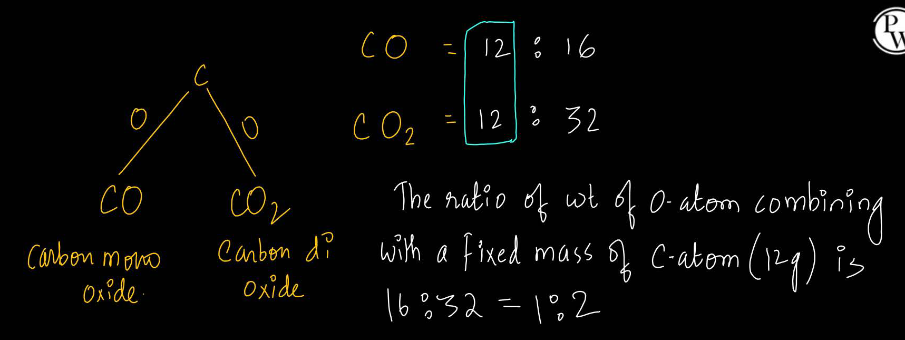 CO = 12 : 16
C
O O
CO₂ = 12 : 32
CO CO₂
Carbon mono oxide.
Carbon di oxide
The ratio of wt of O-atom combining
with a fixed mass of C-atom (12g) is
16 : 32 = 1 : 2
PW